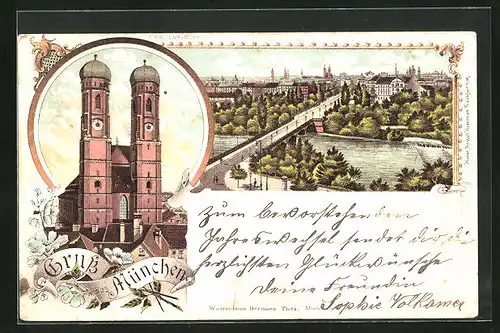 Gruß
aus
München
Zum bevorstehendem
Jahreswechsel sendet dir, die
herzlichsten Glückwünsche
deine Freundin
Sophie Volkamer
Warenhaus Hermann Tietz,